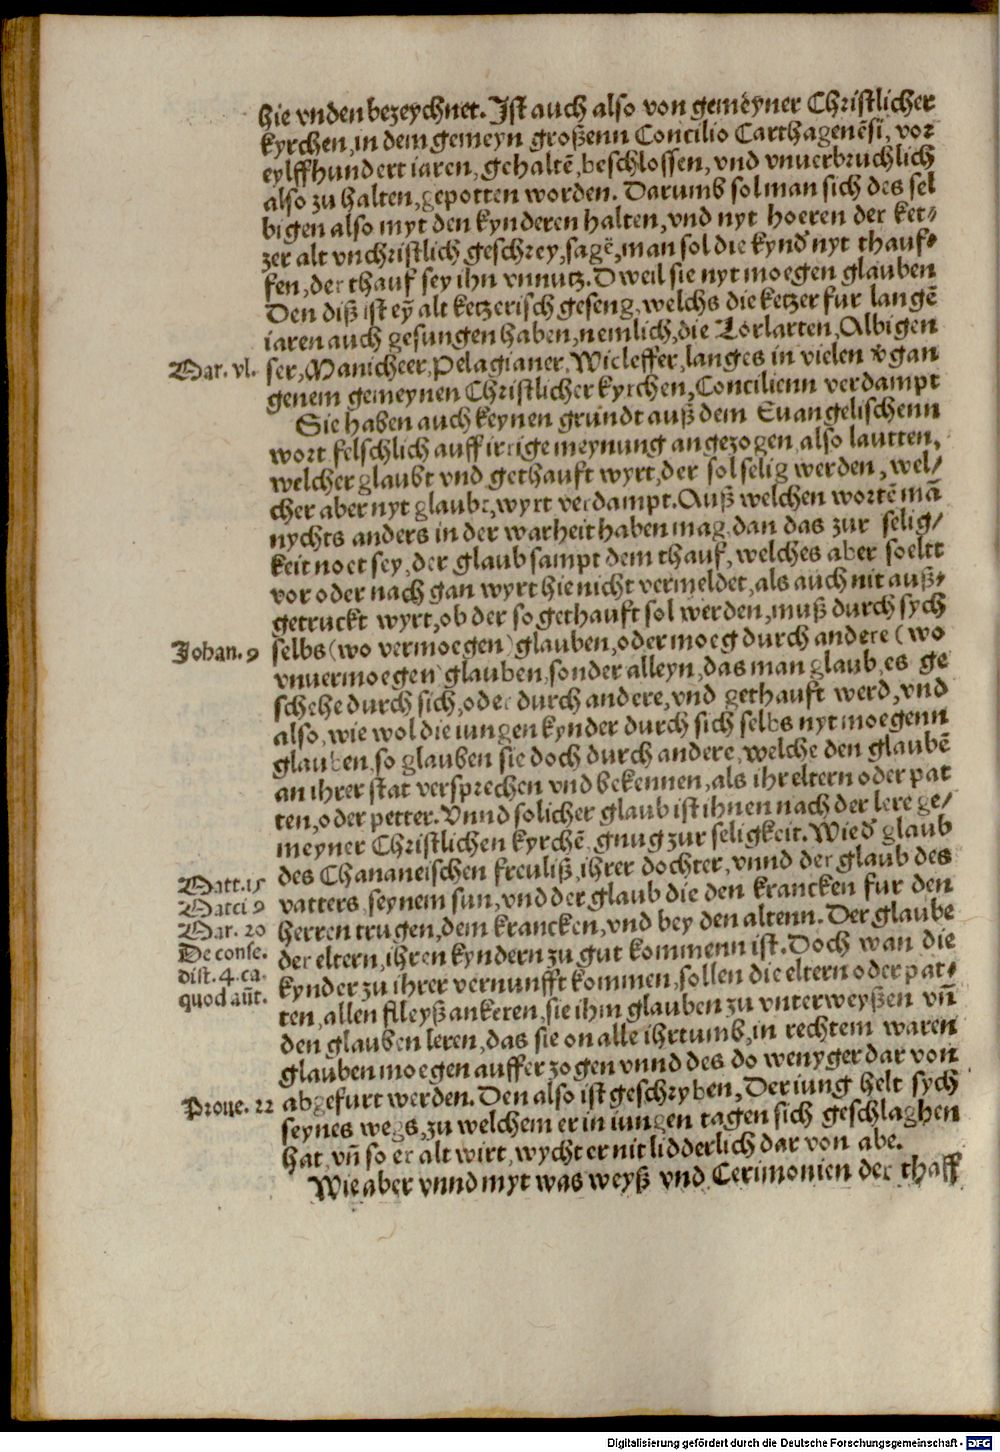 hie vnden bezeychnet. Ist auch also von gemeyner Christlicher
kyrchen, in dem gemeyn großenn Concilio Carthagenēsi, vor
eylffhundert iaren, gehaltē, beschlossen, vnd vnuerbruchlich
also zu halten, gepotten worden. Darumb sol man sich des sel
bigen also myt den kynderen halten, vnd nyt hoeren der ket⸗
zer alt vnchristlich geschrey, sagē, man sol die kynd' nyt thauf⸗
fen, der thauf sey ihn vnnutz. Dweil sie nyt moegen glauben
Den diß ist eȳ alt ketzerisch geseng, welchs die ketzer fur langē
iaren auch gesungen haben, nemlich, die Lorlarten, Albigen
Mar. vl.
ser, Manicheer, Pelagianer, Wicleffer, langes in vielen v'gan
genem gemeynen Christlicher kyrchen, Concilienn verdampt
Sie haben auch keynen grundt auß dem Euangelischenn
wort felschlich auff irrige meynung angezogen, also lautten,
welcher glaubt vnd gethauft wyrt, der sol selig werden, wel/
cher aber nyt glaubt, wyrt verdampt. Auß welchen wortē mā
nychts anders in der warheit haben mag, dan das zur selig/
keit noet sey, der glaub sampt dem thauf, welches aber soeltt
vor oder nach gan wyrt hie nicht vermeldet, als auch nit auß⸗
getruckt wyrt, ob der so gethauft sol werden, muß durch sych
Johan. 9
selbs (wo vermoegen) glauben, oder moeg durch andere (wo
vnuermoegen) glauben, sonder alleyn, das man glaub, es ge
schehe durch sich, oder durch andere, vnd gethauft werd, vnd
also, wie wol die iungen kynder durch sich selbs nyt moegenn
glauben, so glauben sie doch durch andere, welche den glaubē
an ihrer stat versprechen vnd bekennen, als ihr eltern oder pat
ten, oder petter. Vnnd solicher glaub ist ihnen nach der lere ge/
meyner Christlichen kyrchē, gnug zur seligkeit. Wie d' glaub
des Chananeischen freuliß, ihrer dochter, vnnd der glaub des
Matt. 15
vatters seynem sun, vnd der glaub die den krancken fur den
Marci 9
herren trugen, dem krancken, vnd bey den altenn. Der glaube
Mar. 20
der eltern, ihren kyndern zu gut kommenn ist. Doch wan die
De conse.
kynder zu ihrer vernunfft kommen, sollen die eltern oder pat⸗
dist. 4. ca.
ten, allen fleyß ankeren, sie ihm glauben zu vnterweyßen vn̄
quod aūt.
den glauben leren, das sie on alle ihrtumb, in rechtem waren
glauben moegen auffer zogen vnnd des do wenyger dar von
Proue. 22
abgefurt werden. Den also ist geschryben, Der iung helt sych
seynes wegs, zu welchem er in iungen tagen sich geschlaghen
hat, vn̄ so er alt wirt, wycht er nit lidderlich dar von abe.
Wie aber vnnd myt was weyß vnd Cerimonien der thaff
Digitalisierung gefördert durch die Deutsche Forschungsgemeinschaft - DFG